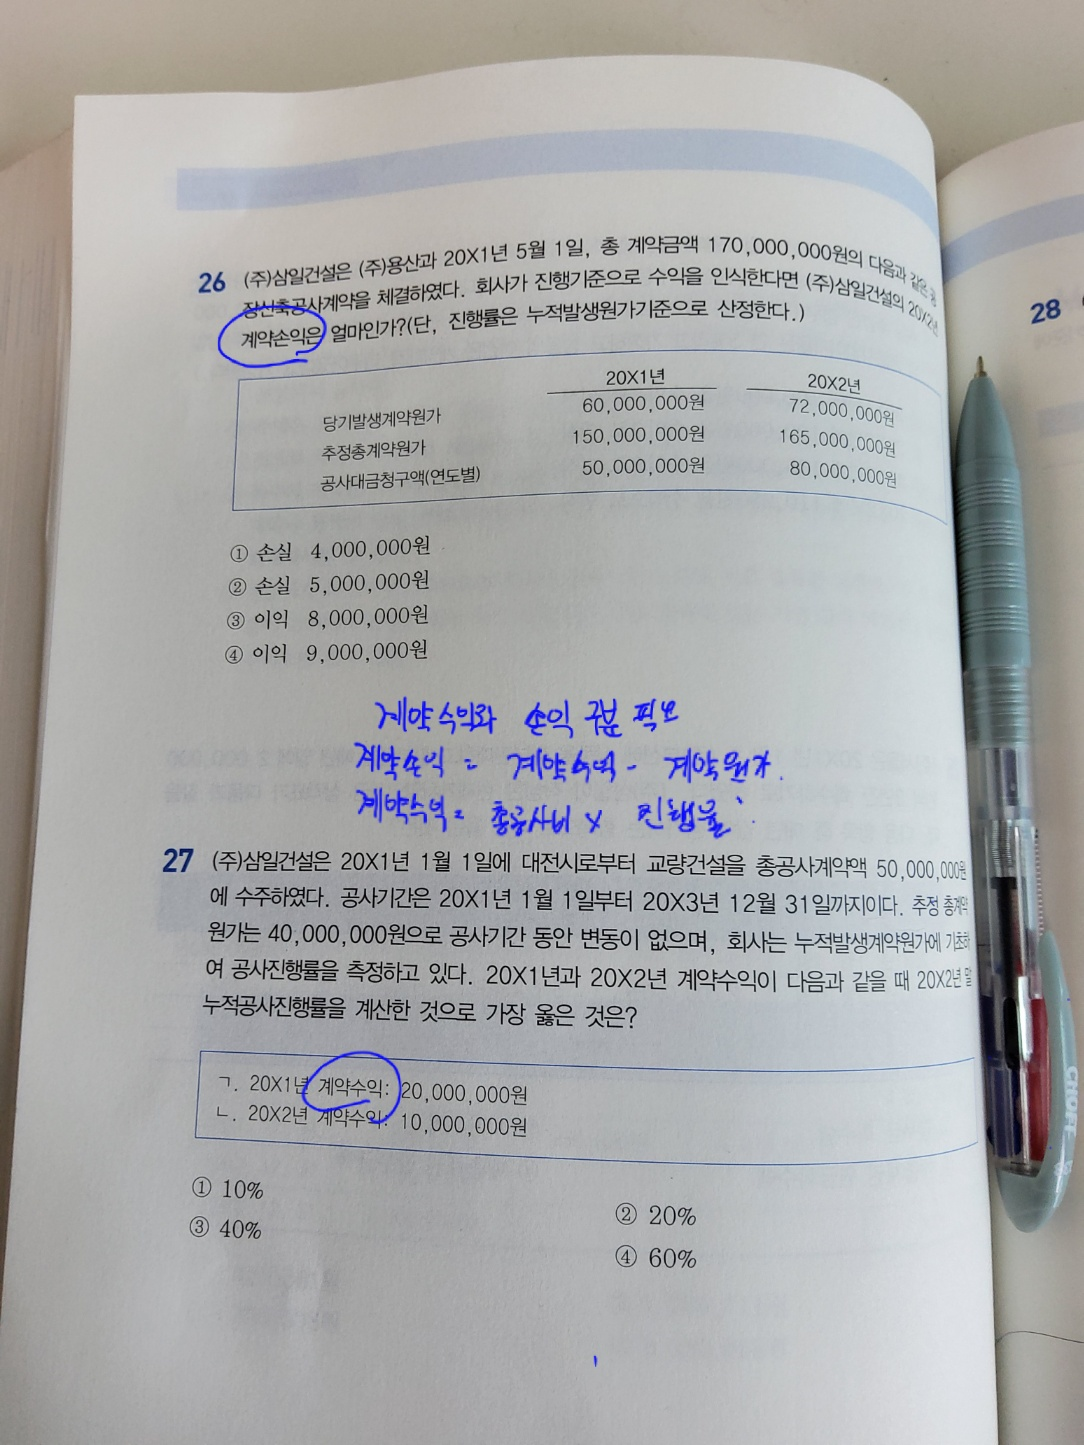 26 (주)삼일건설은 (주)용산과 20X1년 5월 1일, 총 계약금액 170,000,000원의 다음과 같은 공
장신축공사계약을 체결하였다. 회사가 진행기준으로 수익을 인식한다면 (주)삼일건설의 20X2년
계약손익은 얼마인가?(단, 진행률은 누적발생원가기준으로 산정한다.)
20X1년 20X2년
당기발생계약원가 60,000,000원 72,000,000원
추정총계약원가 150,000,000원 165,000,000원
공사대금청구액(연도별) 50,000,000원 80,000,000원
① 손실 4,000,000원
② 손실 5,000,000원
③ 이익 8,000,000원
④ 이익 9,000,000원
계약수익와 손익 구분 필요
계약손익 = 계약수익 - 계약원가.
계약수익 = 총공사비 x 진행률
27 (주)삼일건설은 20X1년 1월 1일에 대전시로부터 교량건설을 총공사계약액 50,000,000원
에 수주하였다. 공사기간은 20X1년 1월 1일부터 20X3년 12월 31일까지이다. 추정 총계약
원가는 40,000,000원으로 공사기간 동안 변동이 없으며, 회사는 누적발생계약원가에 기초하
여 공사진행률을 측정하고 있다. 20X1년과 20X2년 계약수익이 다음과 같을 때 20X2년 말
누적공사진행률을 계산한 것으로 가장 옳은 것은?
ㄱ. 20X1년 계약수익: 20,000,000원
ㄴ. 20X2년 계약수익: 10,000,000원
① 10%
② 20%
③ 40%
④ 60%
28